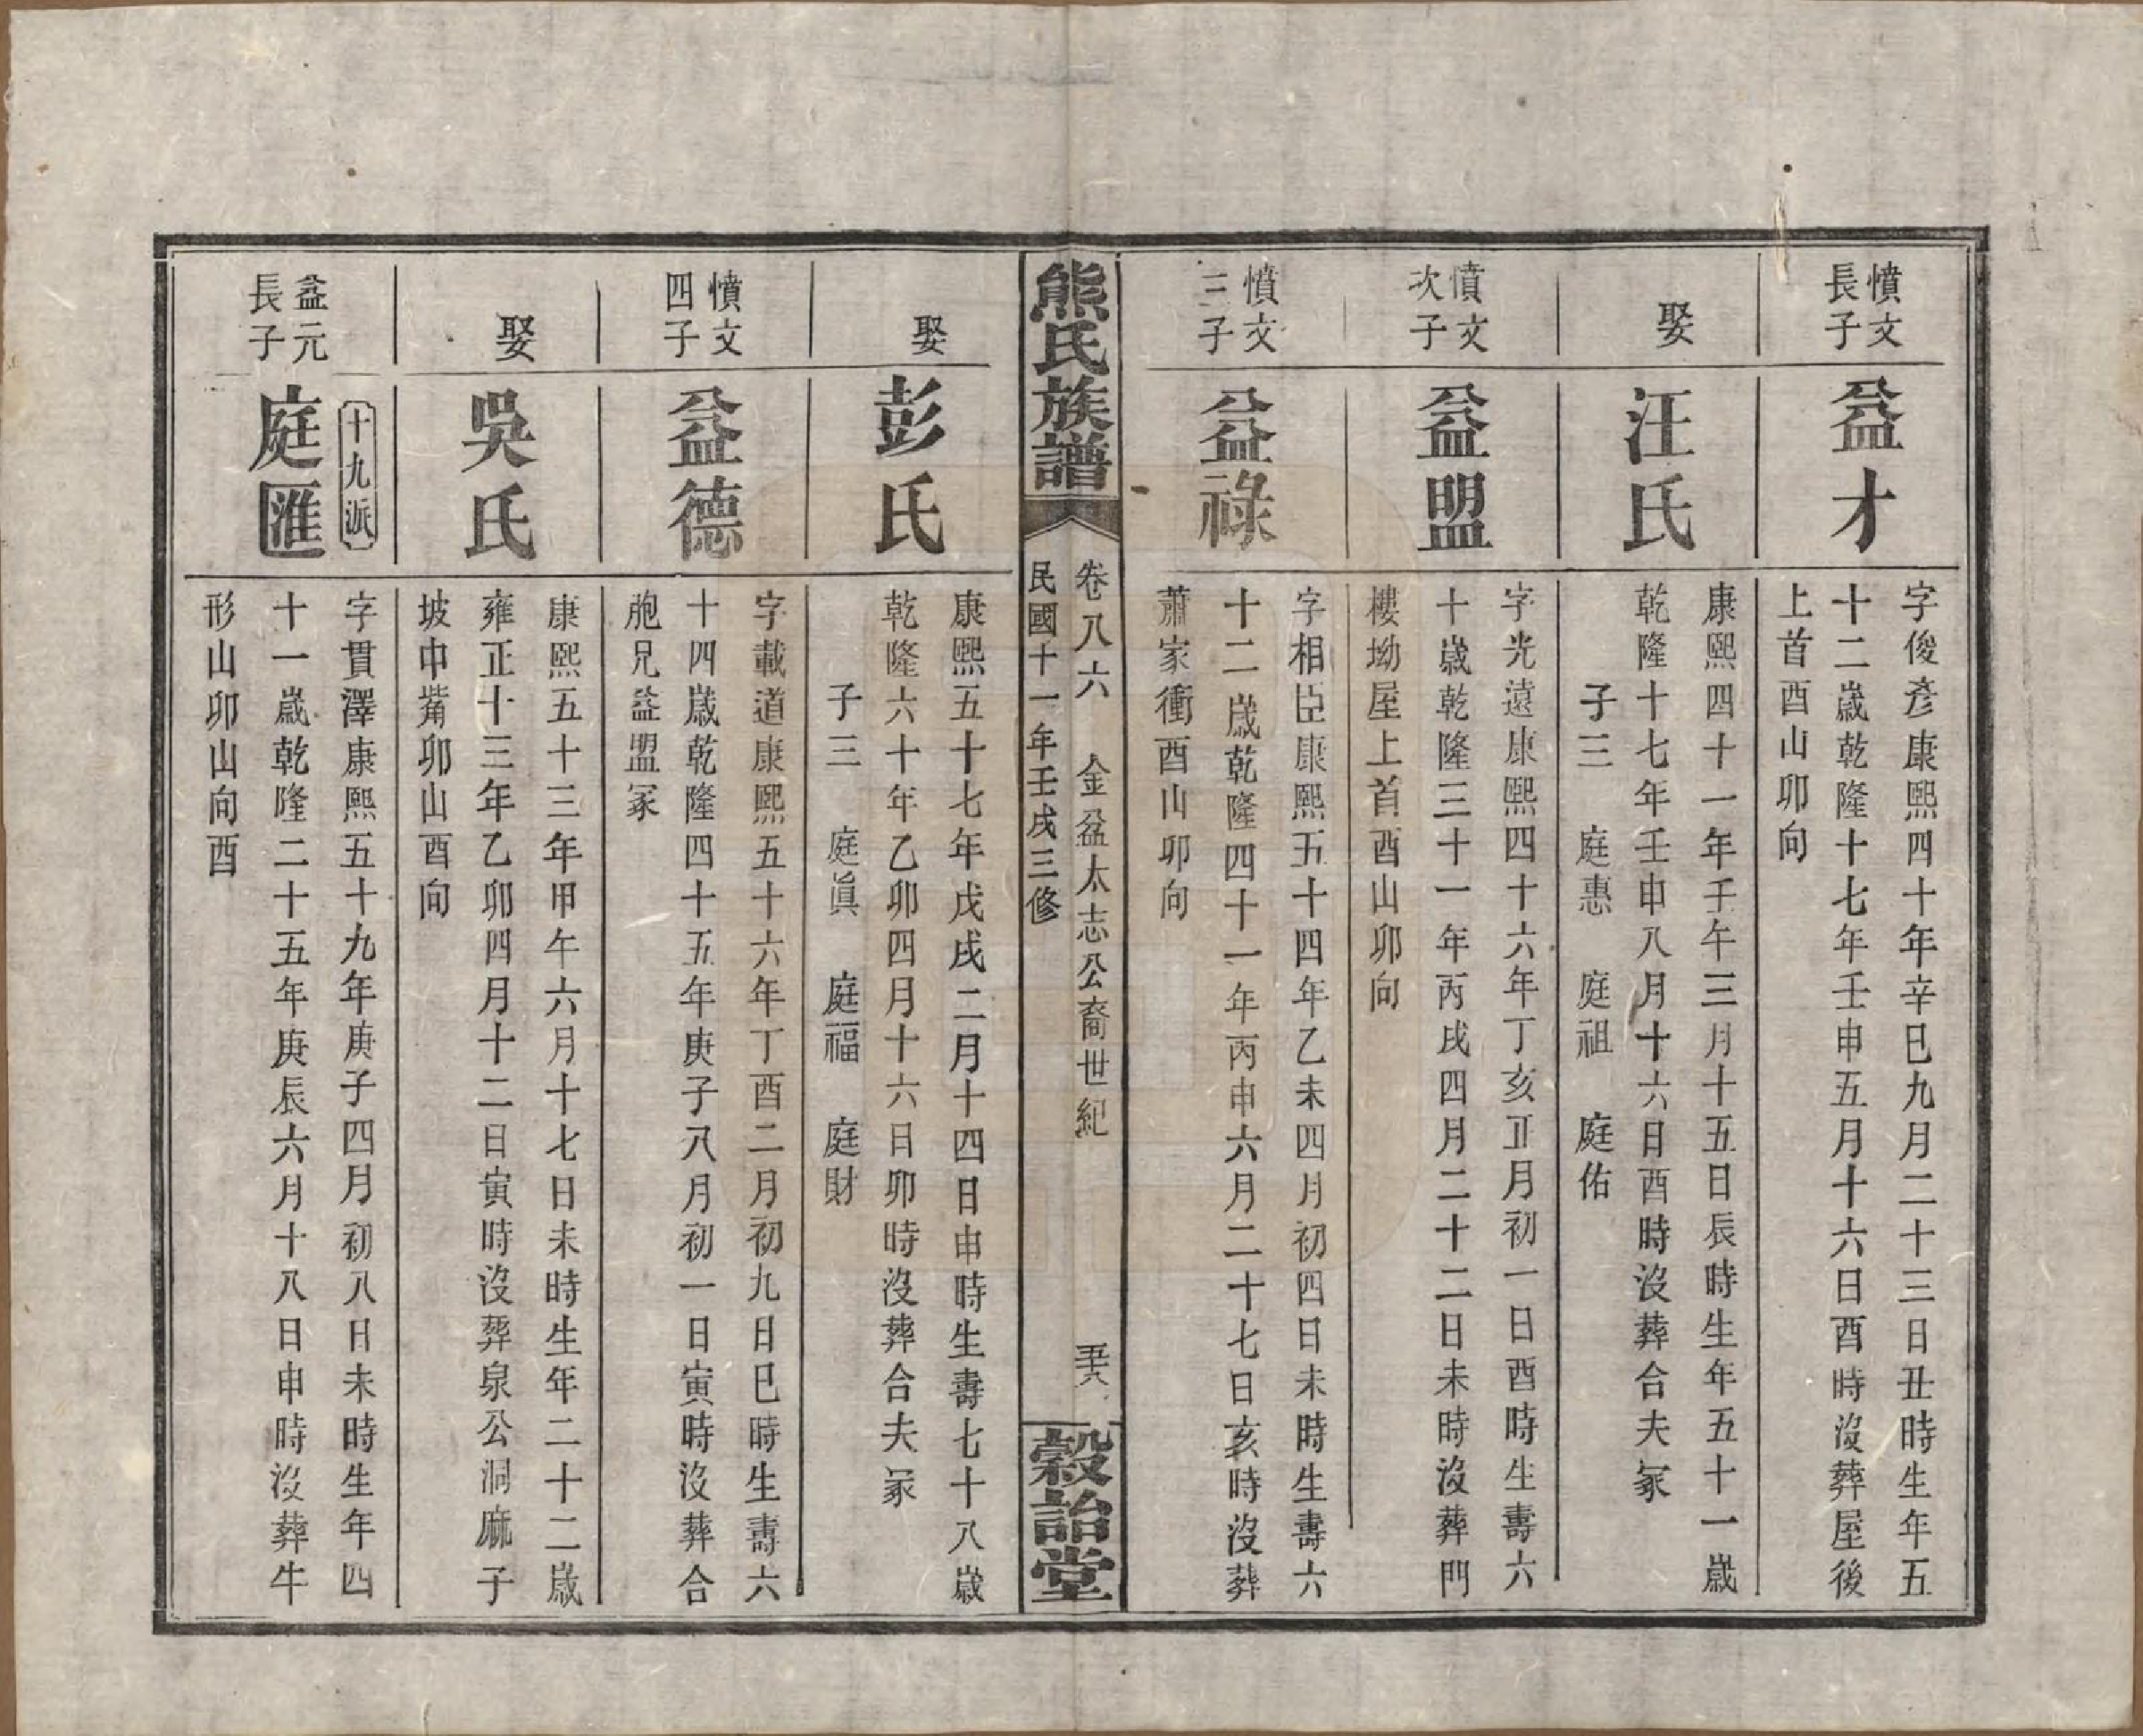 憤文
長子
益才
字俊彥康熙四十年辛巳九月二十三日丑時生年五
十二歲乾隆十七年壬申五月十六日酉時沒葬屋後
上首酉山卯向
娶
汪氏
康熙四十一年壬午三月十五日辰時生年五十一歲
乾隆十七年壬申八月十六日酉時沒葬合夫冢
子三　庭惠　庭祖　庭佑
憤文
次子
益盟
字光遠康熙四十六年丁亥正月初一日酉時生壽六
十歲乾隆三十一年丙戌四月二十二日未時沒葬門
樓坳屋上首酉山卯向
憤文
三子
益祿
字相臣康熙五十四年乙未四月初四日未時生壽六
十二歲乾隆四十一年丙申六月二十七日亥時沒葬
蕭家衝酉山卯向
熊氏族譜
卷八六　金盆太志公裔世紀
民國十一年壬戌三修
榖詒堂
娶
彭氏
康熙五十七年戊戌二月十四日申時生壽七十八歲
乾隆六十年乙卯四月十六日卯時沒葬合夫冢
子三　庭眞　庭福　庭財
憤文
四子
益德
字載道康熙五十六年丁酉二月初九日巳時生壽六
十四歲乾隆四十五年庚子八月初一日寅時沒葬合
胞兄益盟冢
娶
吳氏
康熙五十三年甲午六月十七日未時生年二十二歲
雍正十三年乙卯四月十二日寅時沒葬泉公洞麻子
坡中觜卯山酉向
益元
長子
十九派
庭匯
字貫澤康熙五十九年庚子四月初八日未時生年四
十一歲乾隆二十五年庚辰六月十八日申時沒葬牛
形山卯山向酉